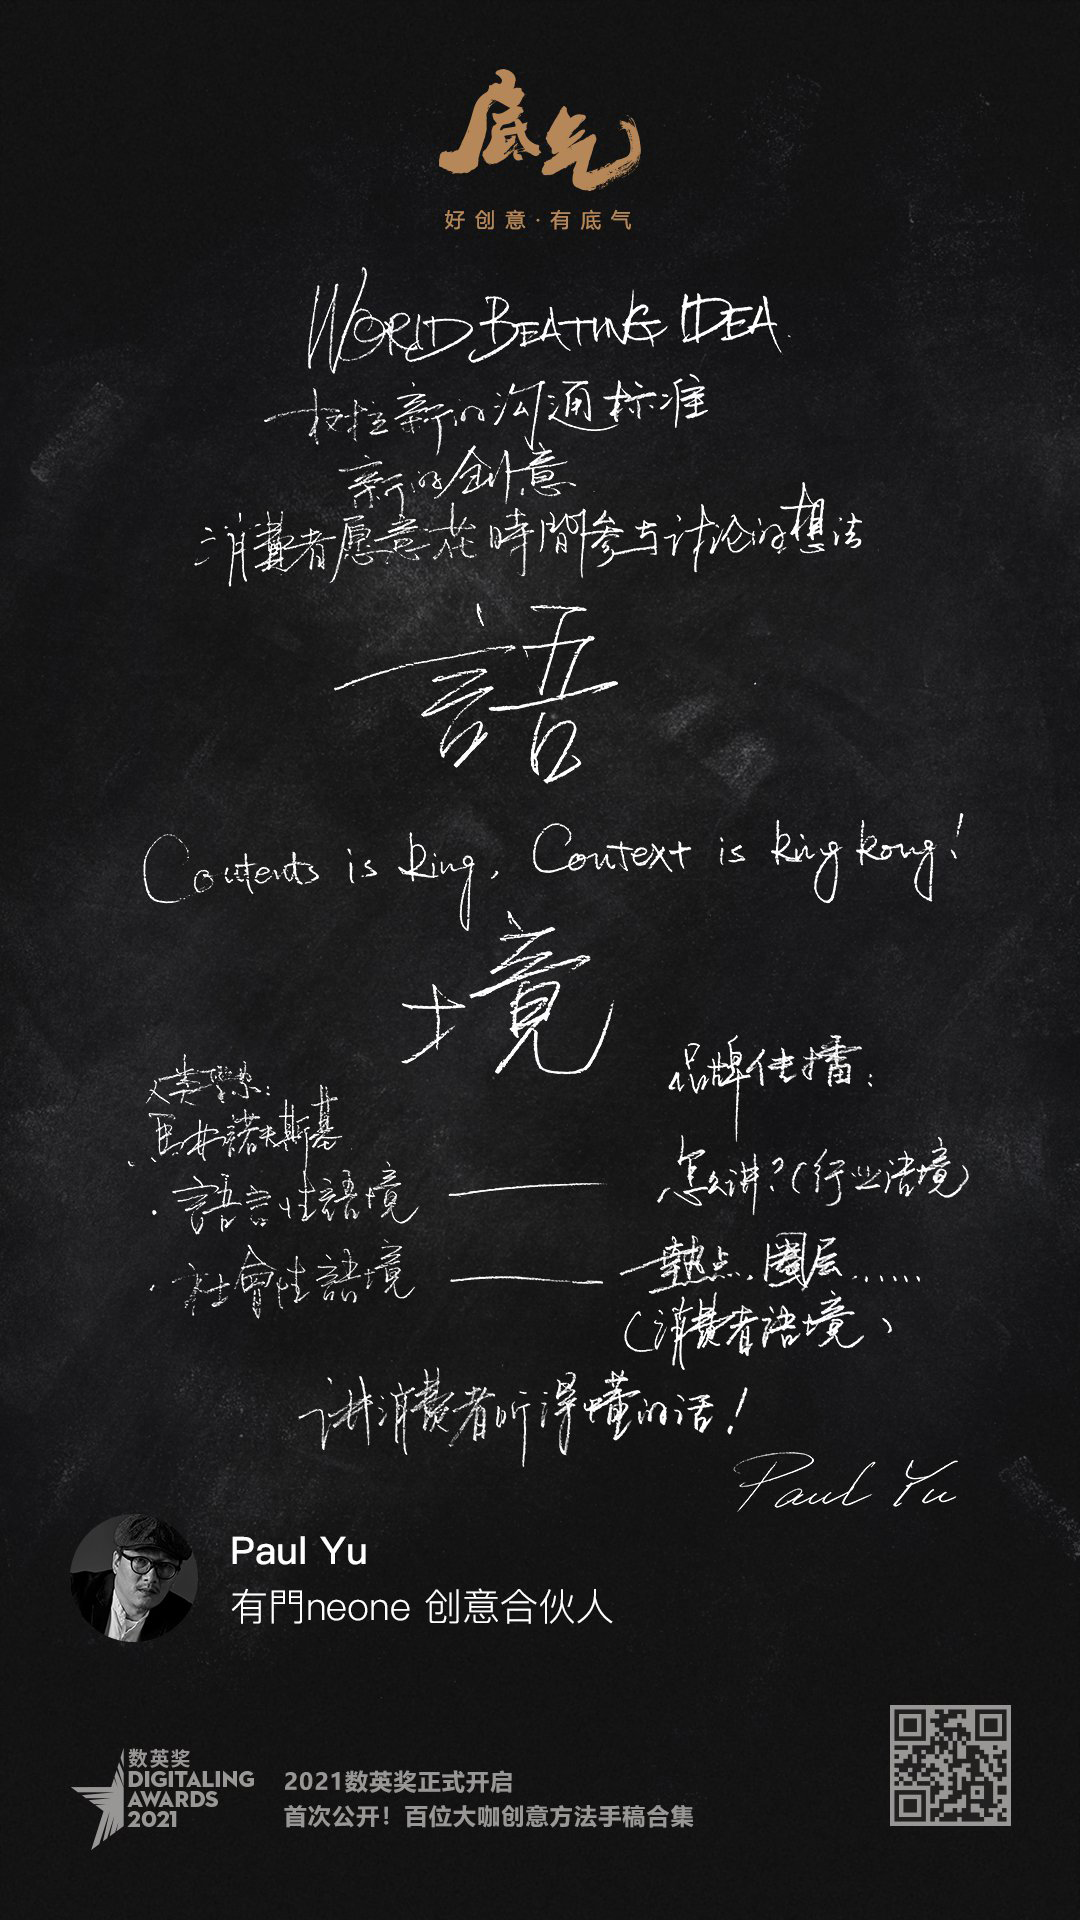 底气
好创意·有底气
WORLD BEATING IDEA.
一树立新的沟通标准
新的創意
消費者愿意花時間参与讨论的想法
語
Contents is king, Context is king kong!
境
人类學系:
馬林諾夫斯基
·語言性語境
·社會性語境
品牌传播:
怎么讲?(行业语境)
熱点、圈层......
(消费者语境)
讲消費者听得懂的话!
Paul Yu
Paul Yu
有門neone 创意合伙人
数英奖
DIGITALING
AWARDS
2021
2021数英奖正式开启
首次公开!百位大咖创意方法手稿合集